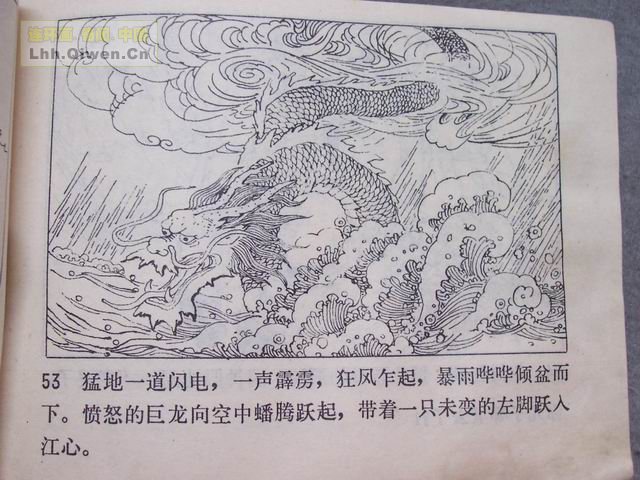 连环画·奇闻·中国
Lhh.Qiwen.Cn
53 猛地一道闪电，一声霹雳，狂风乍起，暴雨哗哗倾盆而
下。愤怒的巨龙向空中蟠腾跃起，带着一只未变的左脚跃入
江心。